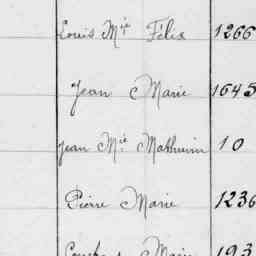 Louis Mie Félix 1266
Jean Marie 1645
Jean Mie Mathurin 10
Pierre Marie 1236
Marie 193